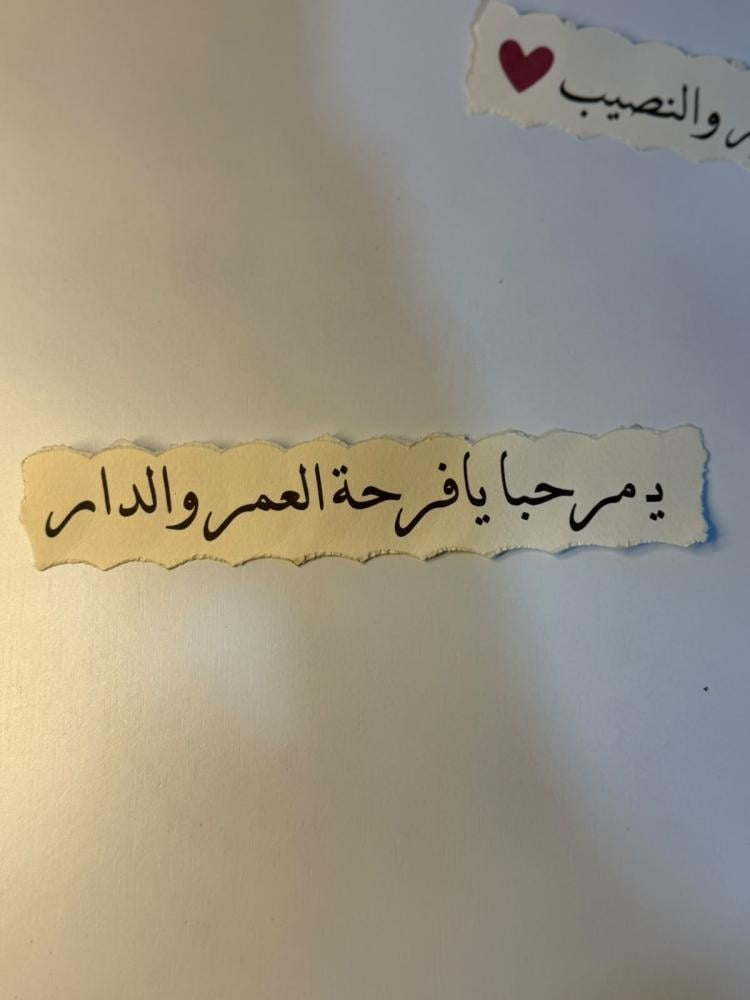 والنصيب
يـ مرحبا يافرحة العمر والدار